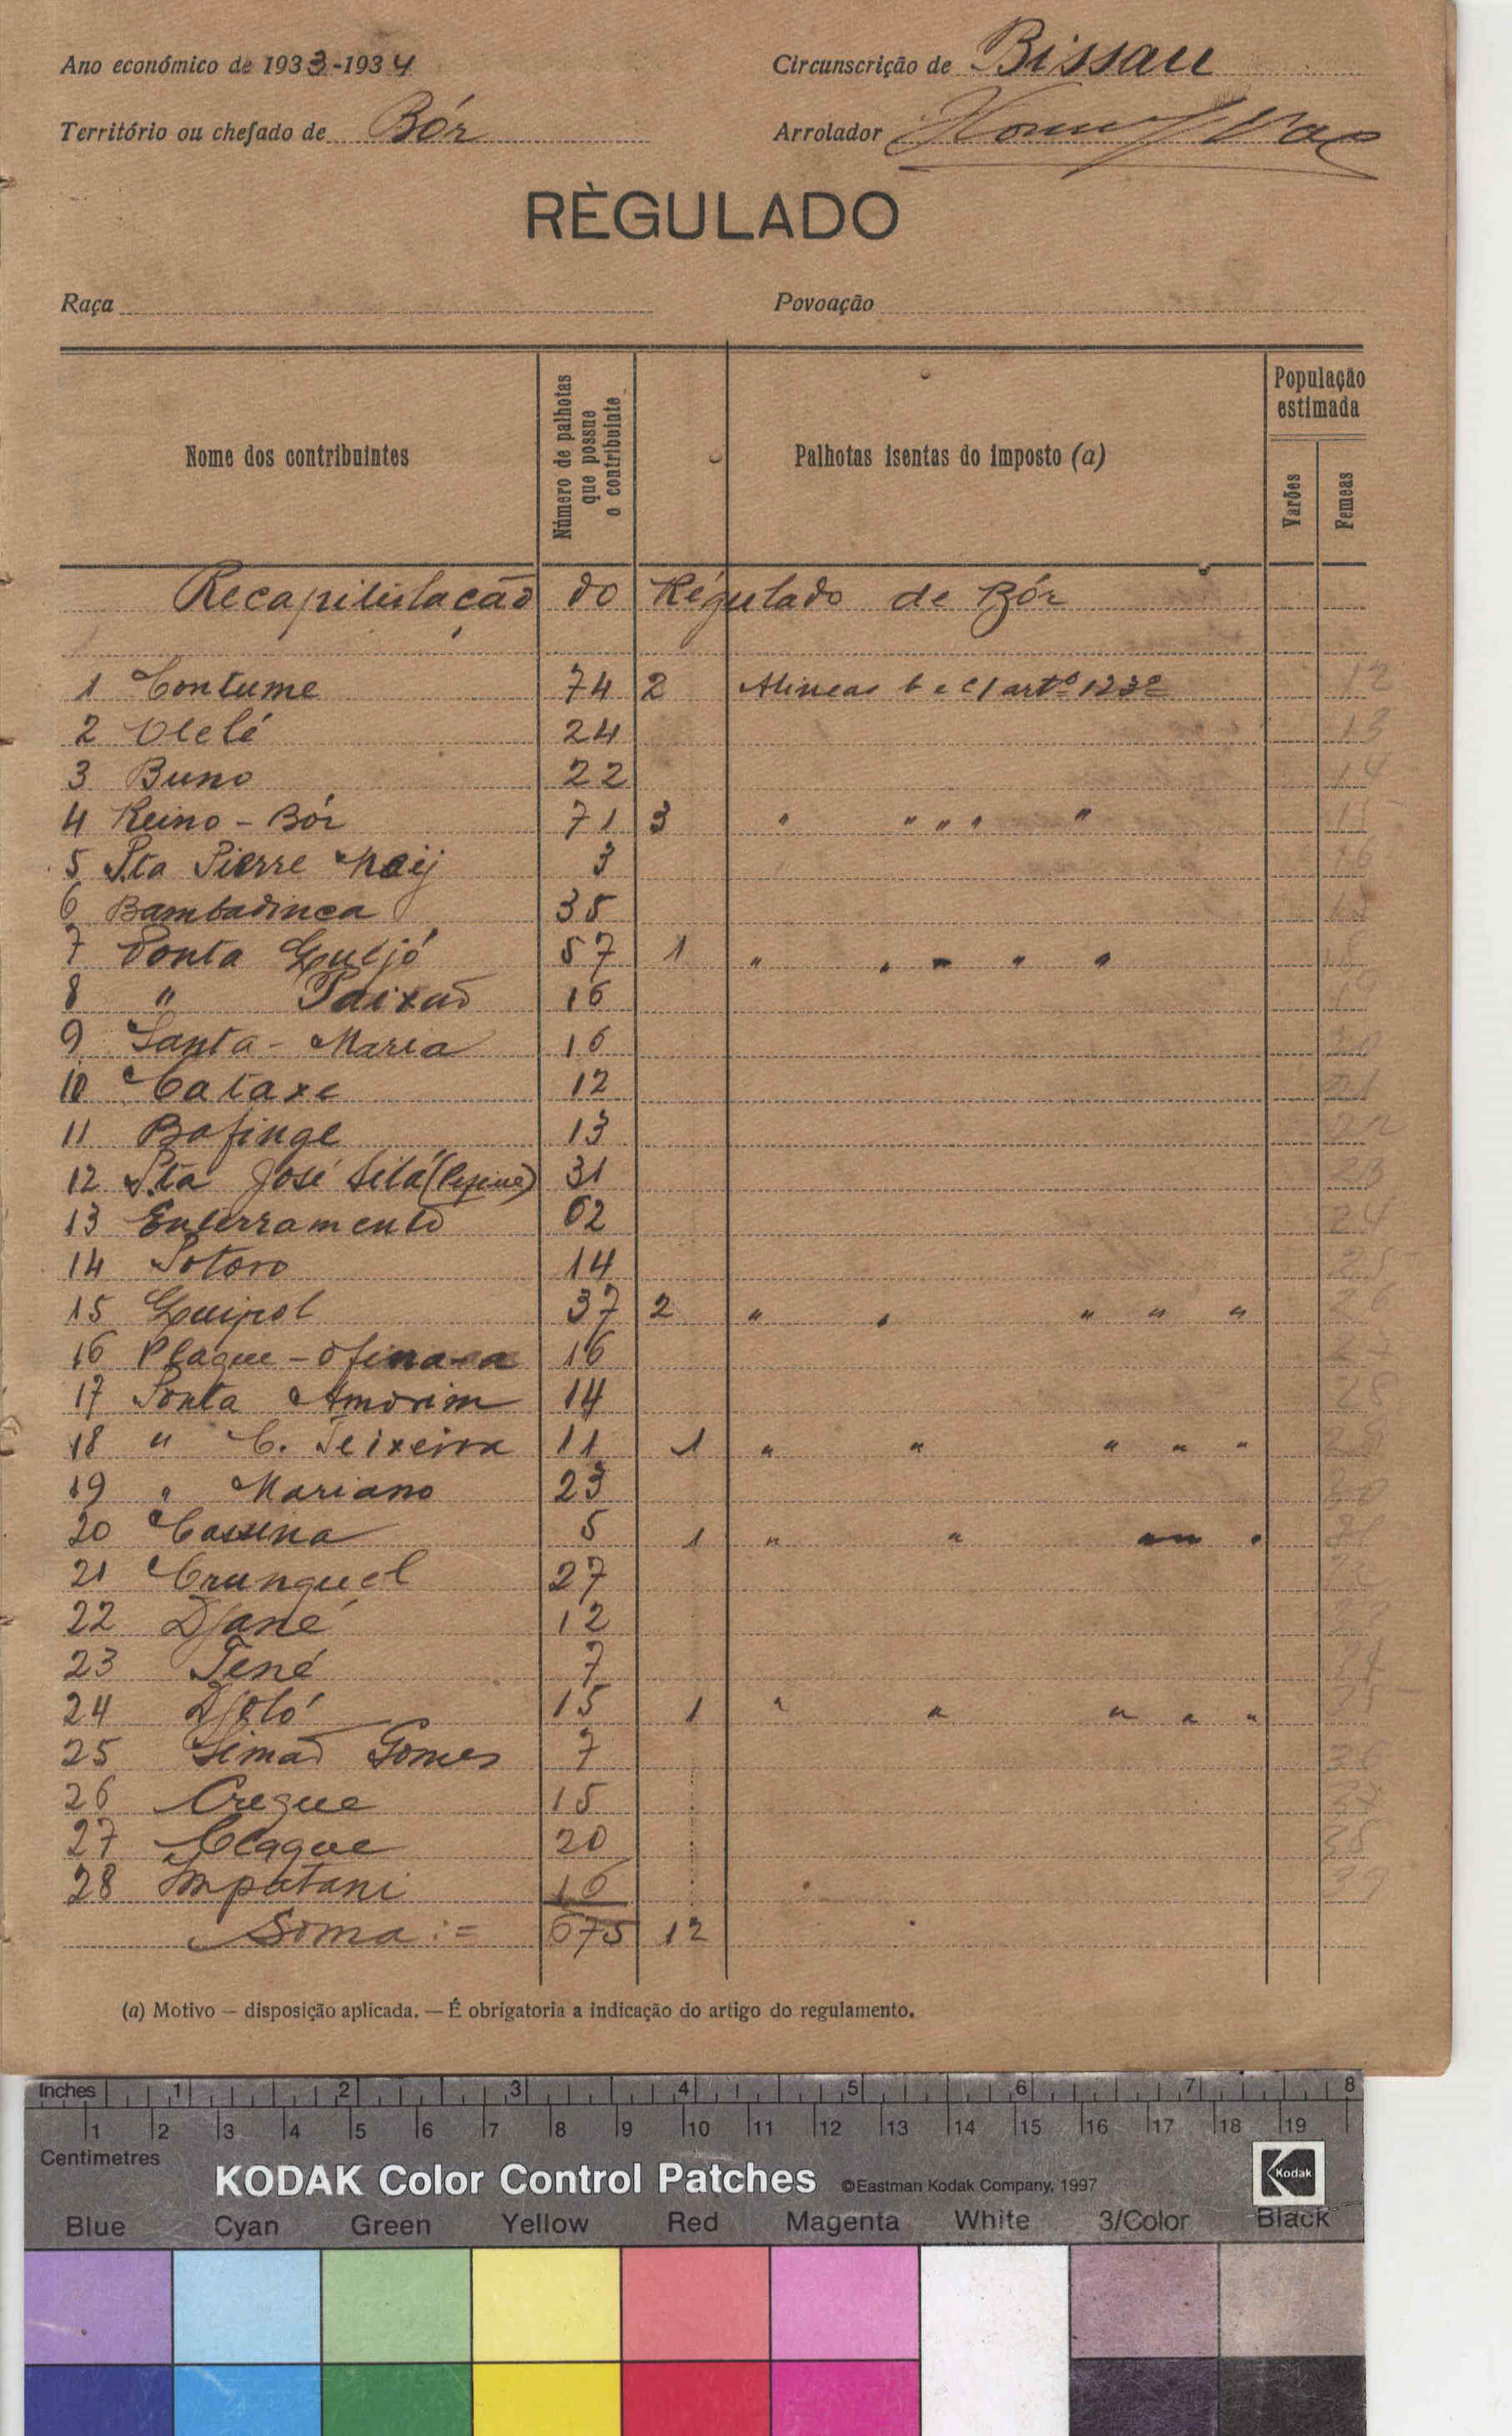 Ano económico de 1933-1934
Circunscrição de Bissau
Território ou chefado de Bór
Arrolador
RÈGULADO
Raça
Povoação
Nome dos contribuintes
Número de palhotas que possue o contribuinte
Palhotas isentas do imposto (a)
População estimada
Varões
Femeas
Recapitulação do Régulado de Bór
1 Contume 74 2 Alineas b e c/ artº 123º 12
2 Olelé 24 13
3 Buno 22 14
4 Reino - Bór 71 3 " " " " " 15
5 Pta Pierre 3 16
6 Bambadinca 35
7 Ponta Guejó 57 1 " " " " " 18
8 " Paixão 16 19
9 Santa - Maria 16 20
10 Cataxe 12 21
11 Bofinge 13 22
12 Pta José Silá 31 23
13 Enterramento 62 24
14 Potoro 14 25
15 Quipol 37 2 " " " " " 26
16 Plaque - 16 27
17 Ponta Amorim 14 28
18 " C. Teixeira 11 1 " " " " " 29
19 " Mariano 23 30
20 5 1 " " " " 31
21 Crunquel 27 32
22 Djané 12 33
23 Tené 7 34
24 Djoló 15 1 " " " " " 35
25 Simão Gomes 7 36
26 Cregue 15 37
27 Claque 20 38
28 Impatani 16 39
Soma := 675 12
(a) Motivo — disposição aplicada. — É obrigatoria a indicação do artigo do regulamento.
Inches 1 2 3 4 5 6 7 8
1 2 3 4 5 6 7 8 9 10 11 12 13 14 15 16 17 18 19
Centimetres
KODAK Color Control Patches ©Eastman Kodak Company, 1997 Kodak
Blue Cyan Green Yellow Red Magenta White 3/Color Black